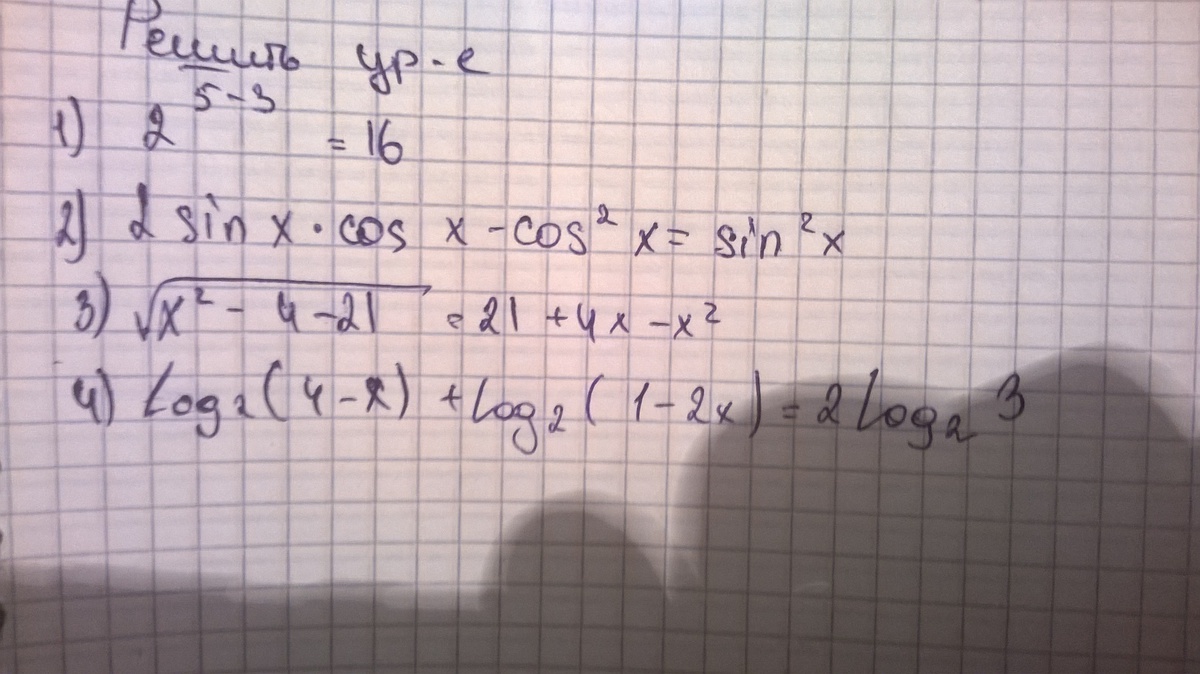 Решить ур-е
1) 2^{5-3} = 16
2) 2 sin x · cos x - cos² x = sin² x
3) √(x² - 4 - 21) = 21 + 4x - x²
4) log₂(4-x) + log₂(1-2x) = 2 log₂ 3